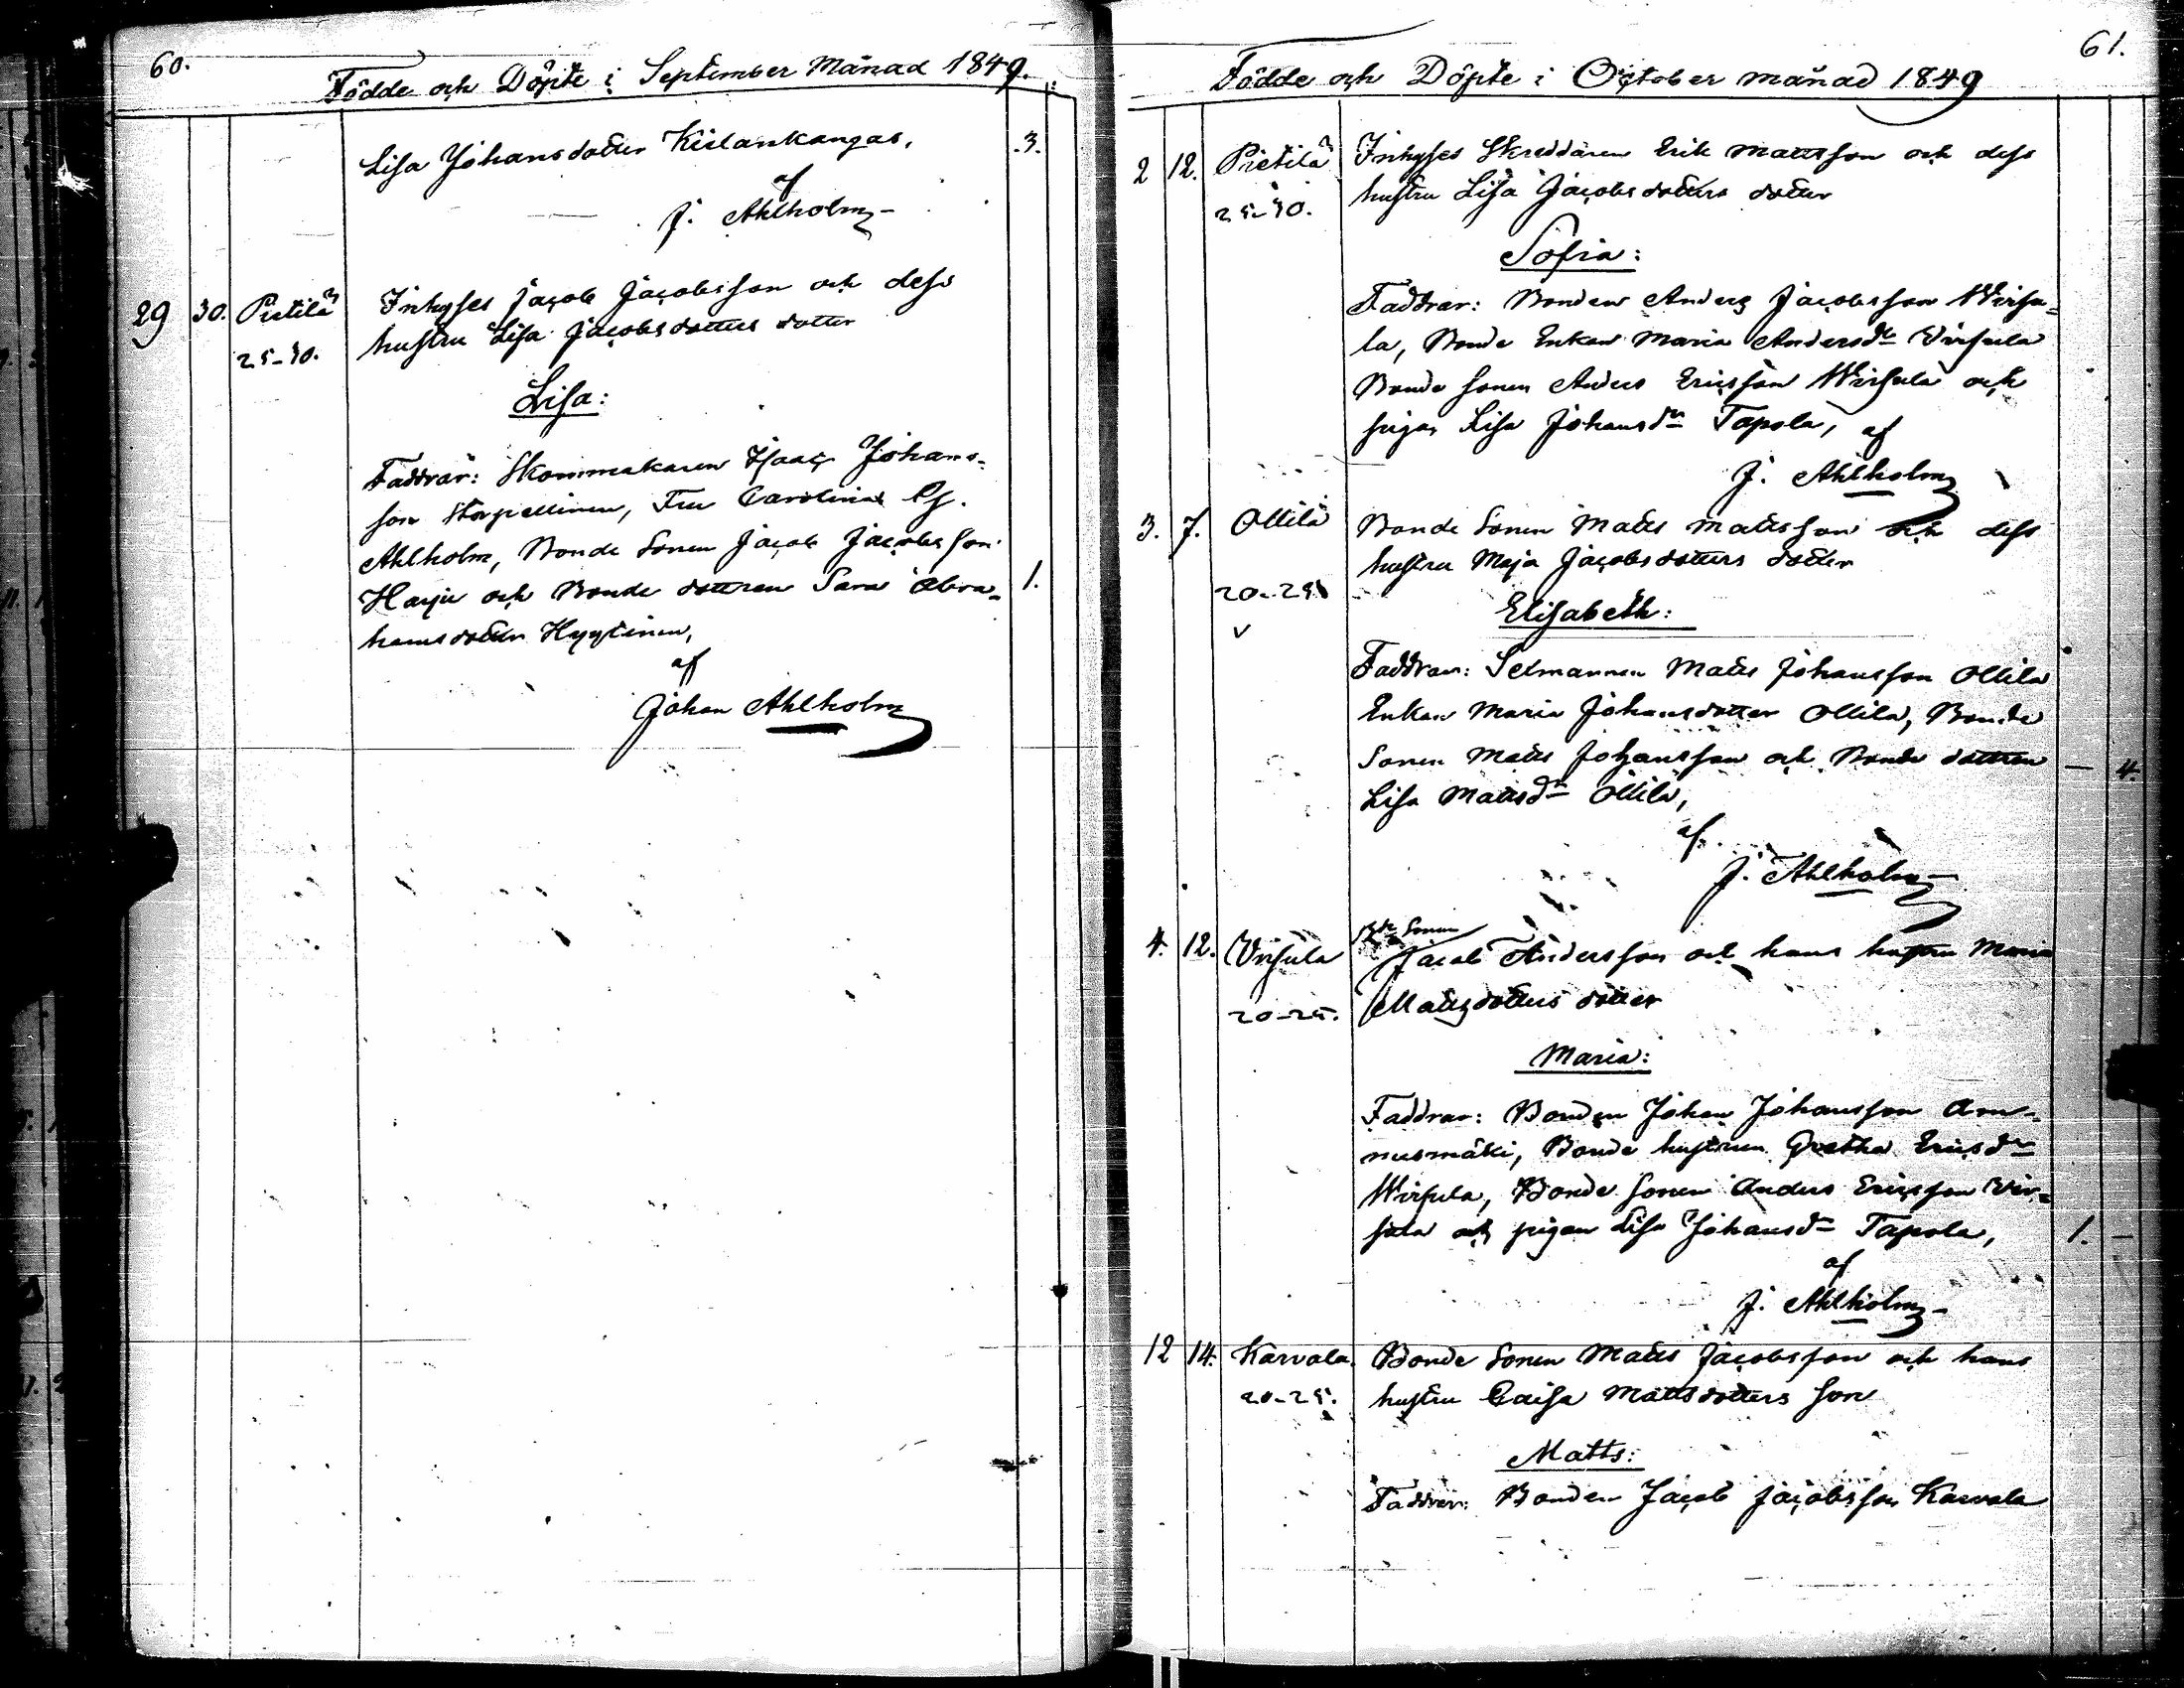 60.
Födde och Döpte i September Månad 1849.
Lisa Johansdotter Kielankangas. 3.
af
J. Ahlholm
29 30. Pietilä Inhyses Jacob Jacobsson och dess
25-30. hustru Lisa Jacobsdotters dotter
Lisa:
Faddrar: Skommakaren Isaac Johans-
son Storpellinen, Fru Carolina
Ahlholm, Bonde Sonen Jacob Jacobsson
Harju och Bonde dottren Sara Abra- 1.
hamsdotter Hyytinen,
af
Johan Ahlholm
61.
Födde och Döpte i October månad 1849
2 12. Pietilä Inhyses Skreddaren Erik Mattsson och dess
25-30. hustru Lisa Jacobsdotters dotter
Sofia:
Faddrar: Bonden Anders Jacobsson Wirsu-
la, Bonde Enkan Maria Andersdr Virsula
Bonde sonen Anders Ericsson Wirsula och
pigan Lisa Johansdr Tapola, af
J. Ahlholm
3. 7. Ollila Bonde Sonen Matts Mattsson och dess
hustru Maja Jacobsdotters dotter
20-25
v
Elisabeth:
Faddrar: Sexmannen Matts Johansson Ollila
Enkan Maria Johansdotter Ollila, Bonde
Sonen Matts Johansson och Bonde dottren — 4.
Lisa Mattsdr Ollila,
af
J. Ahlholm
Bde Sonen
4. 12. Virsula Jacob Andersson och hans hustru Maria
20-25. Mattsdotters dotter
Maria:
Faddrar: Bonden Johan Johansson Am-
musmäki, Bonde hustrun Gretha Ericsdr
Wirsula, Bonde sonen Anders Ericsson Vir-
sula och pigan Lisa Johansdr Tapola, 1. —
af
J. Ahlholm
12 14. Karvala Bonde Sonen Matts Jacobsson och hans
20-25. hustru Caisa Mattsdotters son
Matts:
Faddrar: Bonden Jacob Jacobsson Karvala